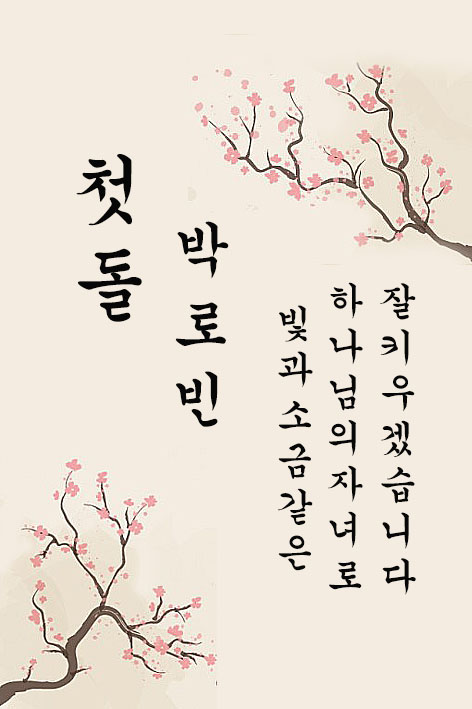 첫돌
박로빈
빛과소금같은
하나님의자녀로
잘키우겠습니다